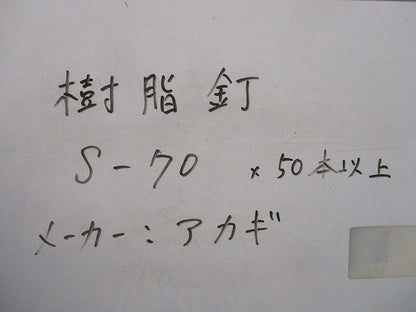 樹脂釘
S-70 × 50本以上
メーカー：アカギ